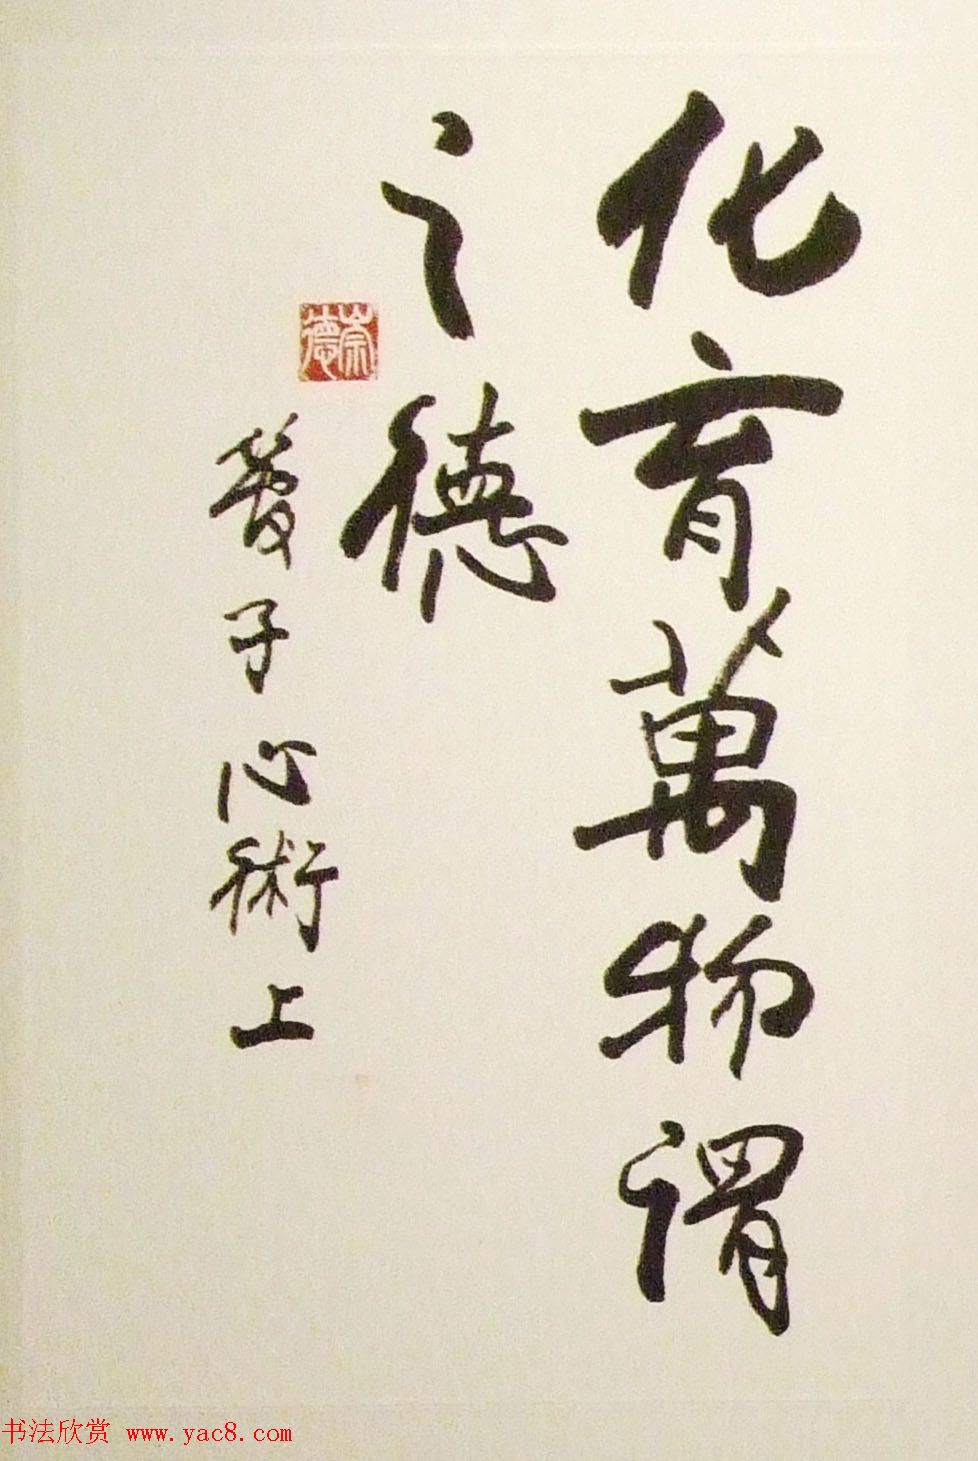 化育萬物謂
之德
崇德
管子心術上
书法欣赏 www.yac8.com